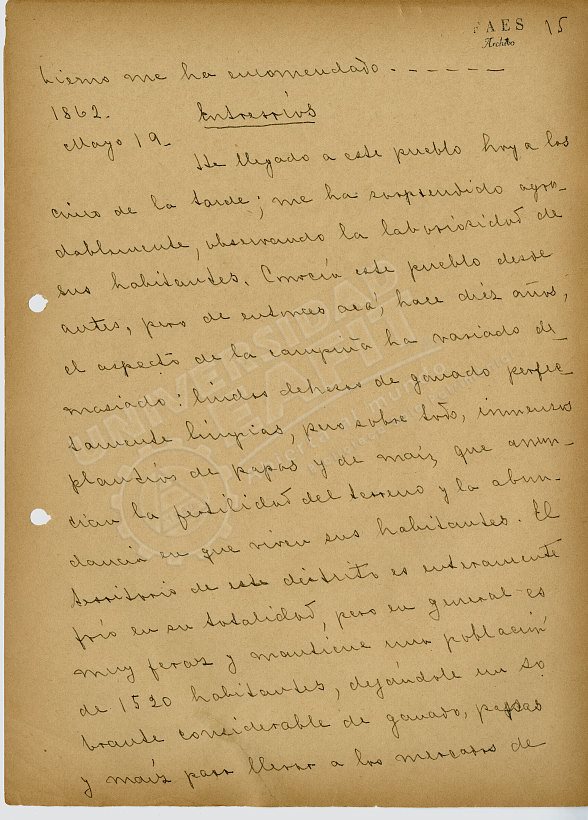 FAES 15
Archivo
bierno me ha encomendado. - - - - - -
1862. Entrerríos
Mayo 19_
He llegado a este pueblo hoy a las
cinco de la tarde; me ha sorprendido agra-
dablemente, observando la laboriosidad de
sus habitantes. Conocía este pueblo desde
antes, pero de entonces acá, hace diez años,
el aspecto de la campiña ha variado de-
masiado: lindas dehesas de ganado perfec-
tamente limpias, pero sobre todo, inmensos
plantíos de papas y de maiz, que anun-
cian la fertilidad del terreno y la abun-
dancia en que viven sus habitantes. El
territorio de este distrito es enteramente
frío en su totalidad, pero en general es
muy feraz y mantiene una población
de 1520 habitantes, dejándole un so
brante considerable de ganado, papas
y maíz para llevar a los mercados de
UNIVERSIDAD
EAFIT